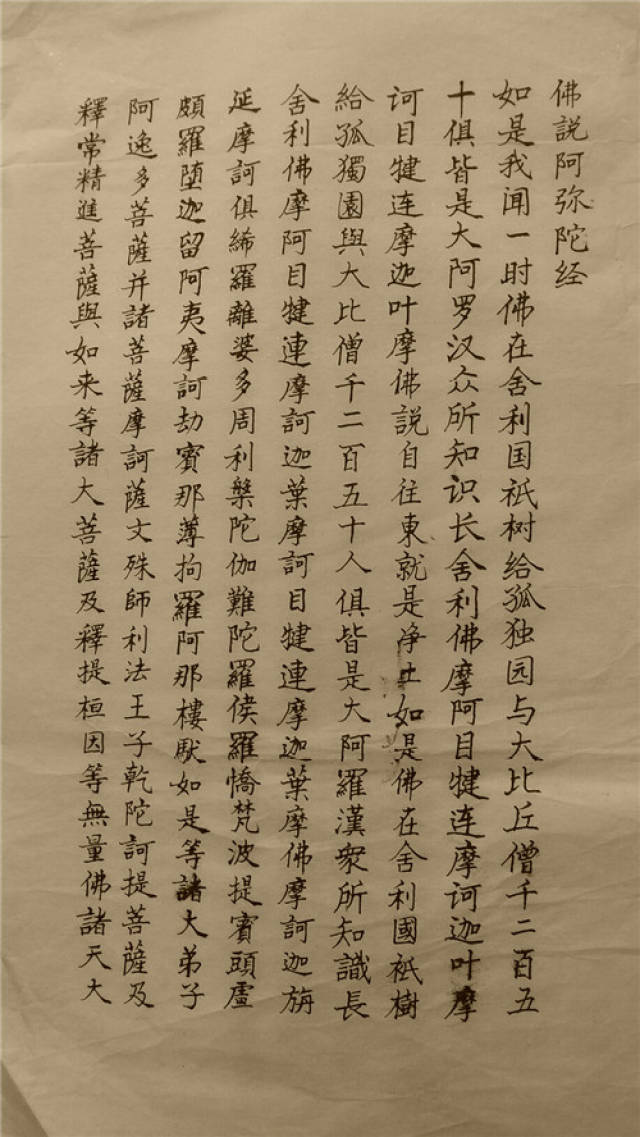 佛說阿弥陀经
如是我闻一时佛在舍利国祇树给孤独园与大比丘僧千二百五
十俱皆是大阿罗汉众所知识长舍利佛摩阿目犍连摩诃迦叶摩
诃目犍连摩迦叶摩佛説自往東就是净土如是佛在舍利國祇樹
給孤獨園與大比僧千二百五十人俱皆是大阿羅漢衆所知識長
舍利佛摩阿目犍連摩訶迦葉摩訶目犍連摩迦葉摩佛摩訶迦旃
延摩訶俱絺羅離婆多周利槃陀伽難陀羅侯羅憍梵波提賓頭盧
頗羅堕迦留阿夷摩訶劫賓那薄拘羅阿那樓馱如是等諸大弟子
阿逸多菩薩并諸菩薩摩訶薩文殊師利法王子乾陀訶提菩薩及
釋常精進菩薩與如来等諸大菩薩及釋提桓因等無量佛諸天大